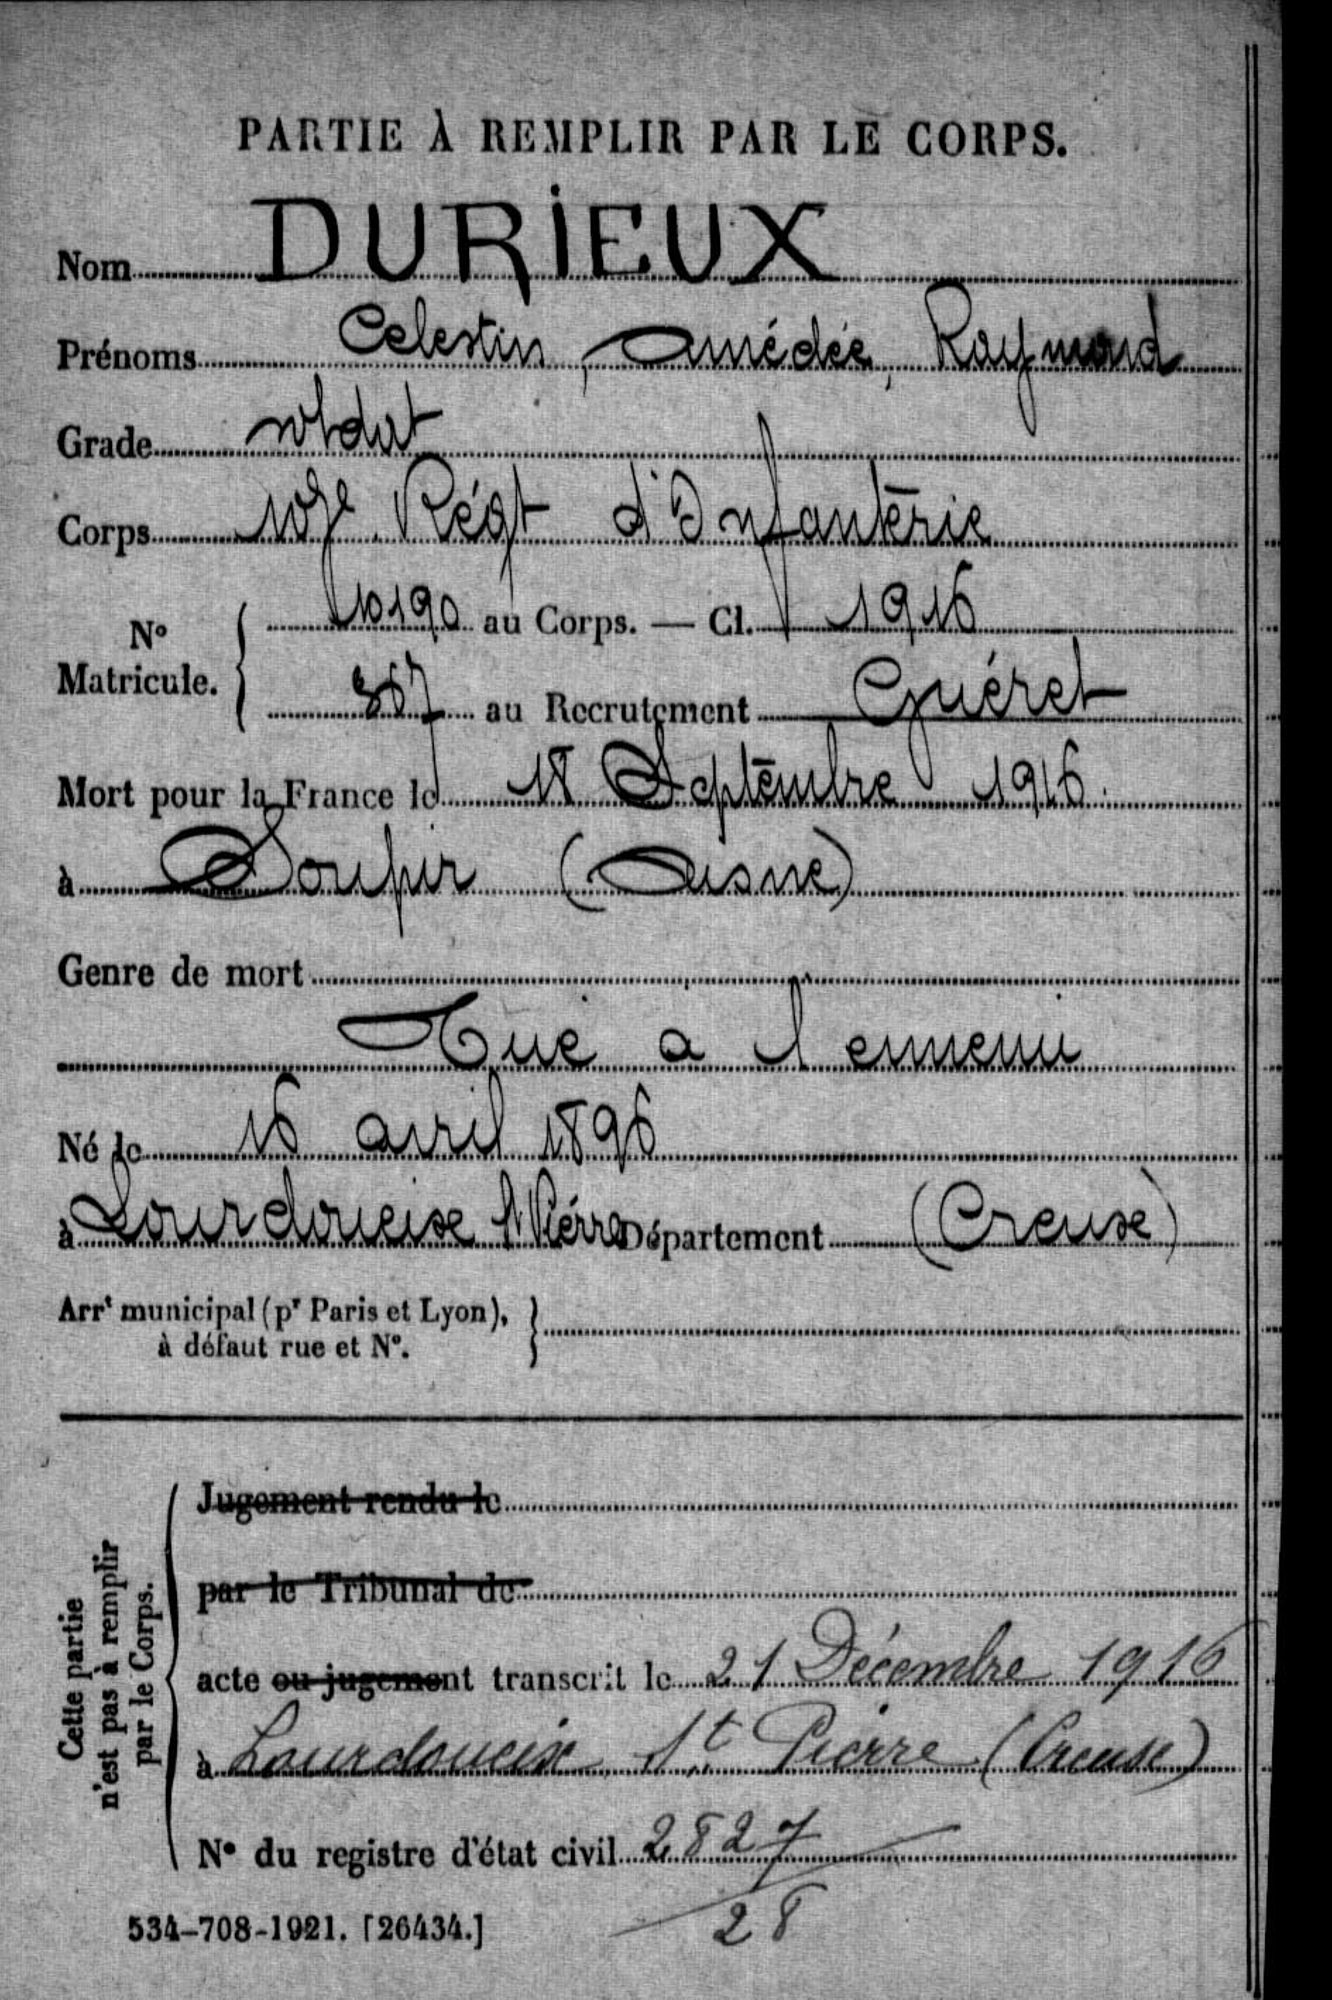 PARTIE À REMPLIR PAR LE CORPS.
Nom DURIEUX
Prénoms Celestin, Amédée, Raymond
Grade soldat
Corps Régt d'Infanterie
N° Matricule. 10190 au Corps. — Cl. 1916
367 au Recrutement Guéret
Mort pour la France le 18 Septembre 1916
à Soupir (Aisne)
Genre de mort
Tué a l'ennemi
Né le 16 avril 1896
à Lourdoueix St Pierre Département (Creuse)
Arrt municipal (pr Paris et Lyon),
à défaut rue et N°.
Cette partie
n'est pas à remplir
par le Corps.
Jugement rendu le
par le Tribunal de
acte ou jugement transcrit le 21 Décembre 1916
à Lourdoueix St Pierre (Creuse)
N° du registre d'état civil 2827
28
534-708-1921. [26434.]